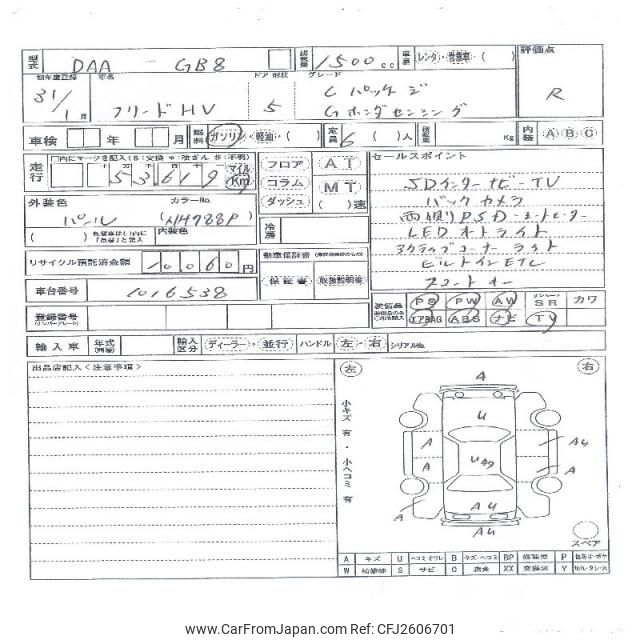 型式 DAA - GB8 排気量 1500 cc 車歴 レンタ・ ・( ) 評価点
初年度登録 車名 ドア 形状 グレード
31/1月 フリード HV 5 Cパッケージ R
Gホンダセンシング
車検 年 月 燃料 ガソリン・軽油・( ) 定員 6( )人 積載量 Kg 内装 A B C
走行 □内にマークを記入(S:交換 *:改ざん #:不明) フロア AT セールスポイント
十 万 千 百 十 マイル コラム MT
53619 Km ダッシュ ( )速
SDインターナビ-TV
バックカメラ
両側PSD-シートヒーター
LEDオートライト
アクティブコーナーライト
ビルトインETC
スマートキー
外装色 カラーNo. 冷房
パール (NH788P)
( ) 内装色
リサイクル預託済金額 10060円 新車保証書
車台番号 1016538 保証書 取扱説明書
装備品 PS PW AW SR カワ
登録番号 エアBAG ABS ナビ TV
(ナンバープレート)
輸入車 年式 輸入区分 ディーラー・並行 ハンドル 左・右 シリアルNo.
出品店記入<注意事項> 左 右
小キズ 有・小ヘコミ 有
4
U
A A4
U 47
A A
A A
A4
A4
スペア
A キズ U ヘコミ B キズ・ヘコミ BP P
W 補修跡 S サビ C 腐食 XX 交換済 Y
© CarFromJapan.com CFJ2606701